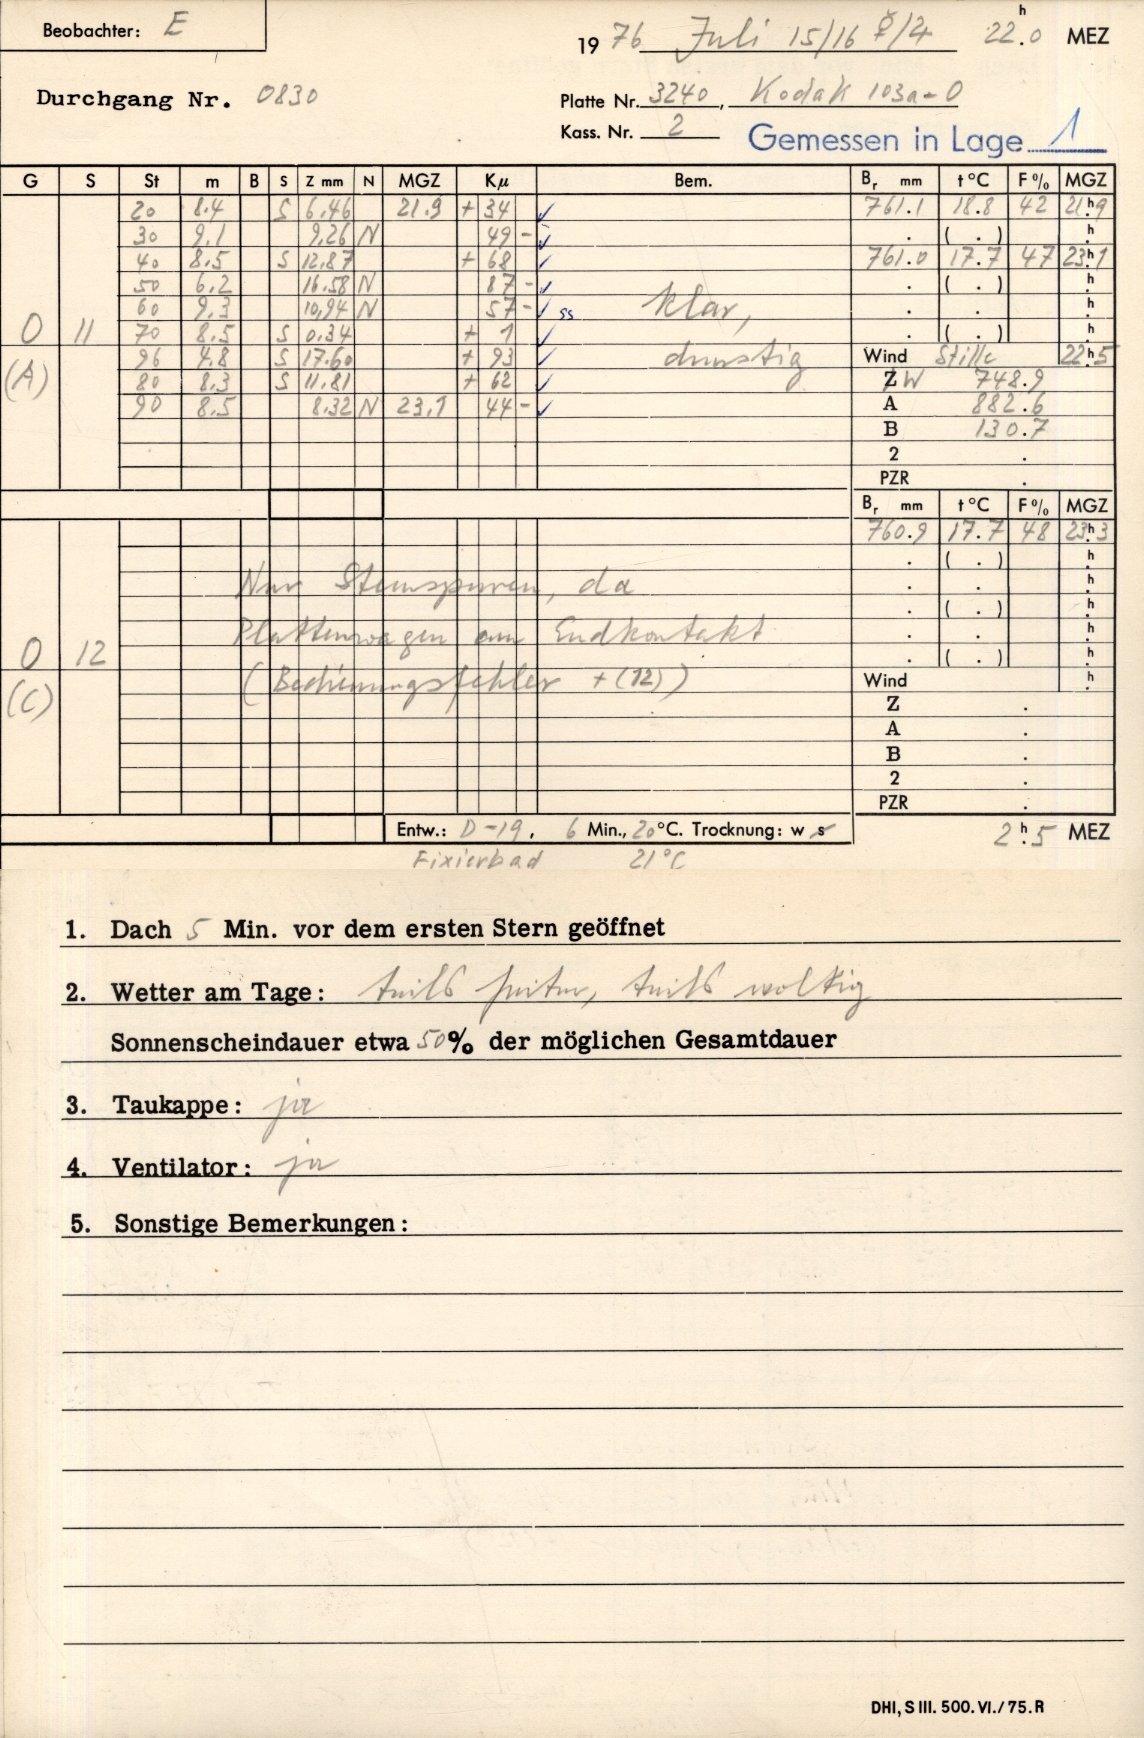 Beobachter: E
19 76 Juli 15/16 ☿/♃ 22.h0 MEZ
Durchgang Nr. 0830
Platte Nr. 3240, Kodak 103a-O
Kass. Nr. 2 Gemessen in Lage 1
G S St m B S Z mm N MGZ Kμ Bem. Br mm t°C F% MGZ
20 8.4 S 6.46 21.9 + 34 ✓ 761.1 18.8 42 21.h9
30 9.1 9.26 N 49 - ✓ . ( . ) .h
40 8.5 S 12.87 + 68 ✓ 761.0 17.7 47 23.h1
50 6.2 16.58 N 87 - ✓ . ( . ) .h
60 9.3 10,94 N 57 - ✓ ss klar, . . .h
O 11 70 8.5 S 0.34 + 1 ✓ . ( . ) .h
(A) 96 4.8 S 17.60 + 93 ✓ dunstig Wind Stille 22.h5
80 8.3 S 11.81 + 62 ✓ Z W 748.9
90 8.5 8.32 N 23.1 44 - ✓ A 882.6
B 130.7
2 .
PZR .
Br mm t°C F% MGZ
760.9 17.7 48 23.h3
. ( . ) .h
Nur Sternspuren, da . . .h
. ( . ) .h
Plattenwagen am Endkontakt . . .h
O 12 . ( . ) .h
(C) (Bedienungsfehler + (12)) Wind .h
Z .
A .
B .
2 .
PZR .
Entw.: D-19, 6 Min., 20°C. Trocknung: w s 2.h5 MEZ
Fixierbad 21°C
1. Dach 5 Min. vor dem ersten Stern geöffnet
2. Wetter am Tage: teils heiter, teils wolkig
Sonnenscheindauer etwa 50% der möglichen Gesamtdauer
3. Taukappe: ja
4. Ventilator: ja
5. Sonstige Bemerkungen:
DHI, S III. 500. VI./75. R